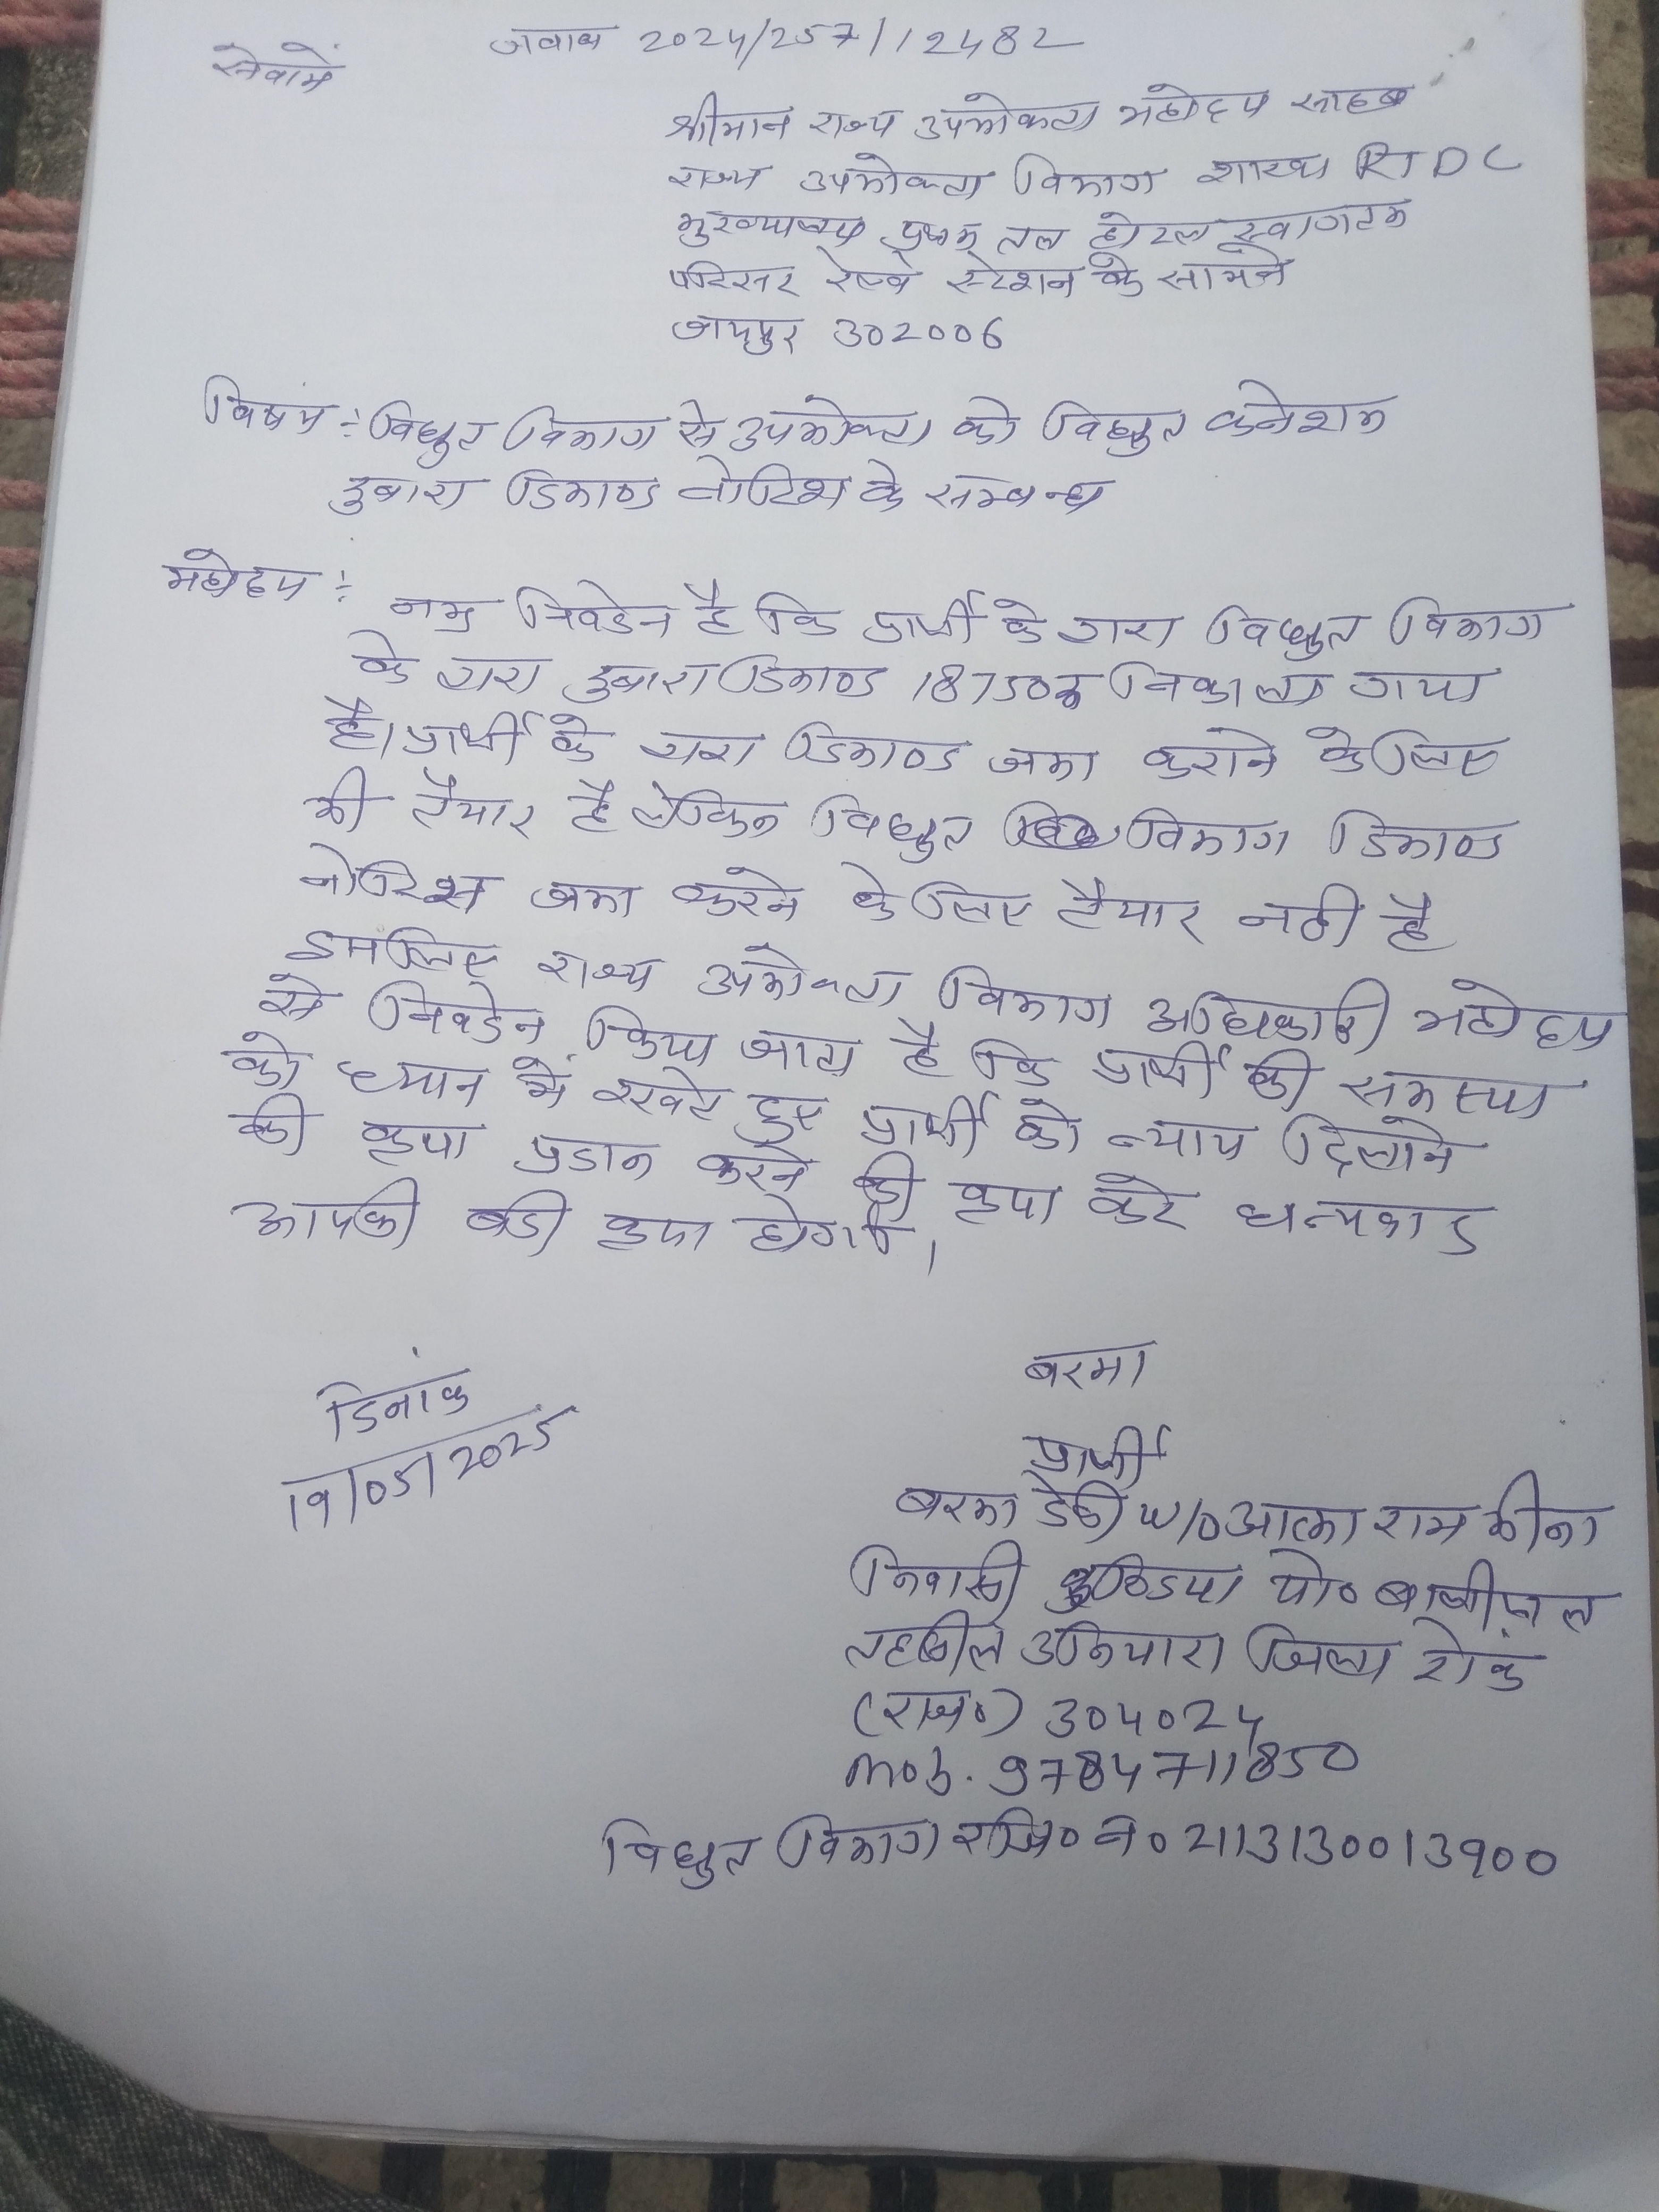 जवाब 2024/257/12482
सेवामें
श्रीमान राज्य उपभोक्ता महोदय साहब
राज्य उपभोक्ता विभाग शाखा RTDC
मुख्यालय प्रथम तल होटल स्वागतम
परिसर रेल्वे स्टेशन के सामने
जयपुर 302006
विषय :- विधुत विभाग से उपभोक्ता को विधुत कनेशन
डुबारा डिमाण्ड नोटिश के सम्बन्ध
महोदय :- नम्र निवेडन है कि प्रार्थी के द्वारा विधुत विभाग
के द्वारा डुबारा डिमाण्ड 18750रू निकाला गया
है। प्रार्थी के द्वारा डिमाण्ड जमा कराने के लिए
भी तैयार है लेकिन विधुत विभाग डिमाण्ड
नोटिश जमा करने के लिए तैयार नही है
इसलिए राज्य उपभोक्ता विभाग अधिकारी महोदय
से निवेडन किया जाता है कि प्रार्थी की समस्या
को ध्यान में रखते हुए प्रार्थी को न्याय दिलाने
की कृपा प्रडान करने की कृपा करे धन्यवाड
आपकी बडी कृपा होगी।
डिनांक
19/05/2025
बरमा
प्रार्थी
बरमा डेवी w/o आत्मा राम मीना
निवासी कुण्डिया पो०
तहसील उनियारा जिला टोंक
(राज०) 304024
mob. 9784711850
विधुत विभाग रजि० न० 2113130013900